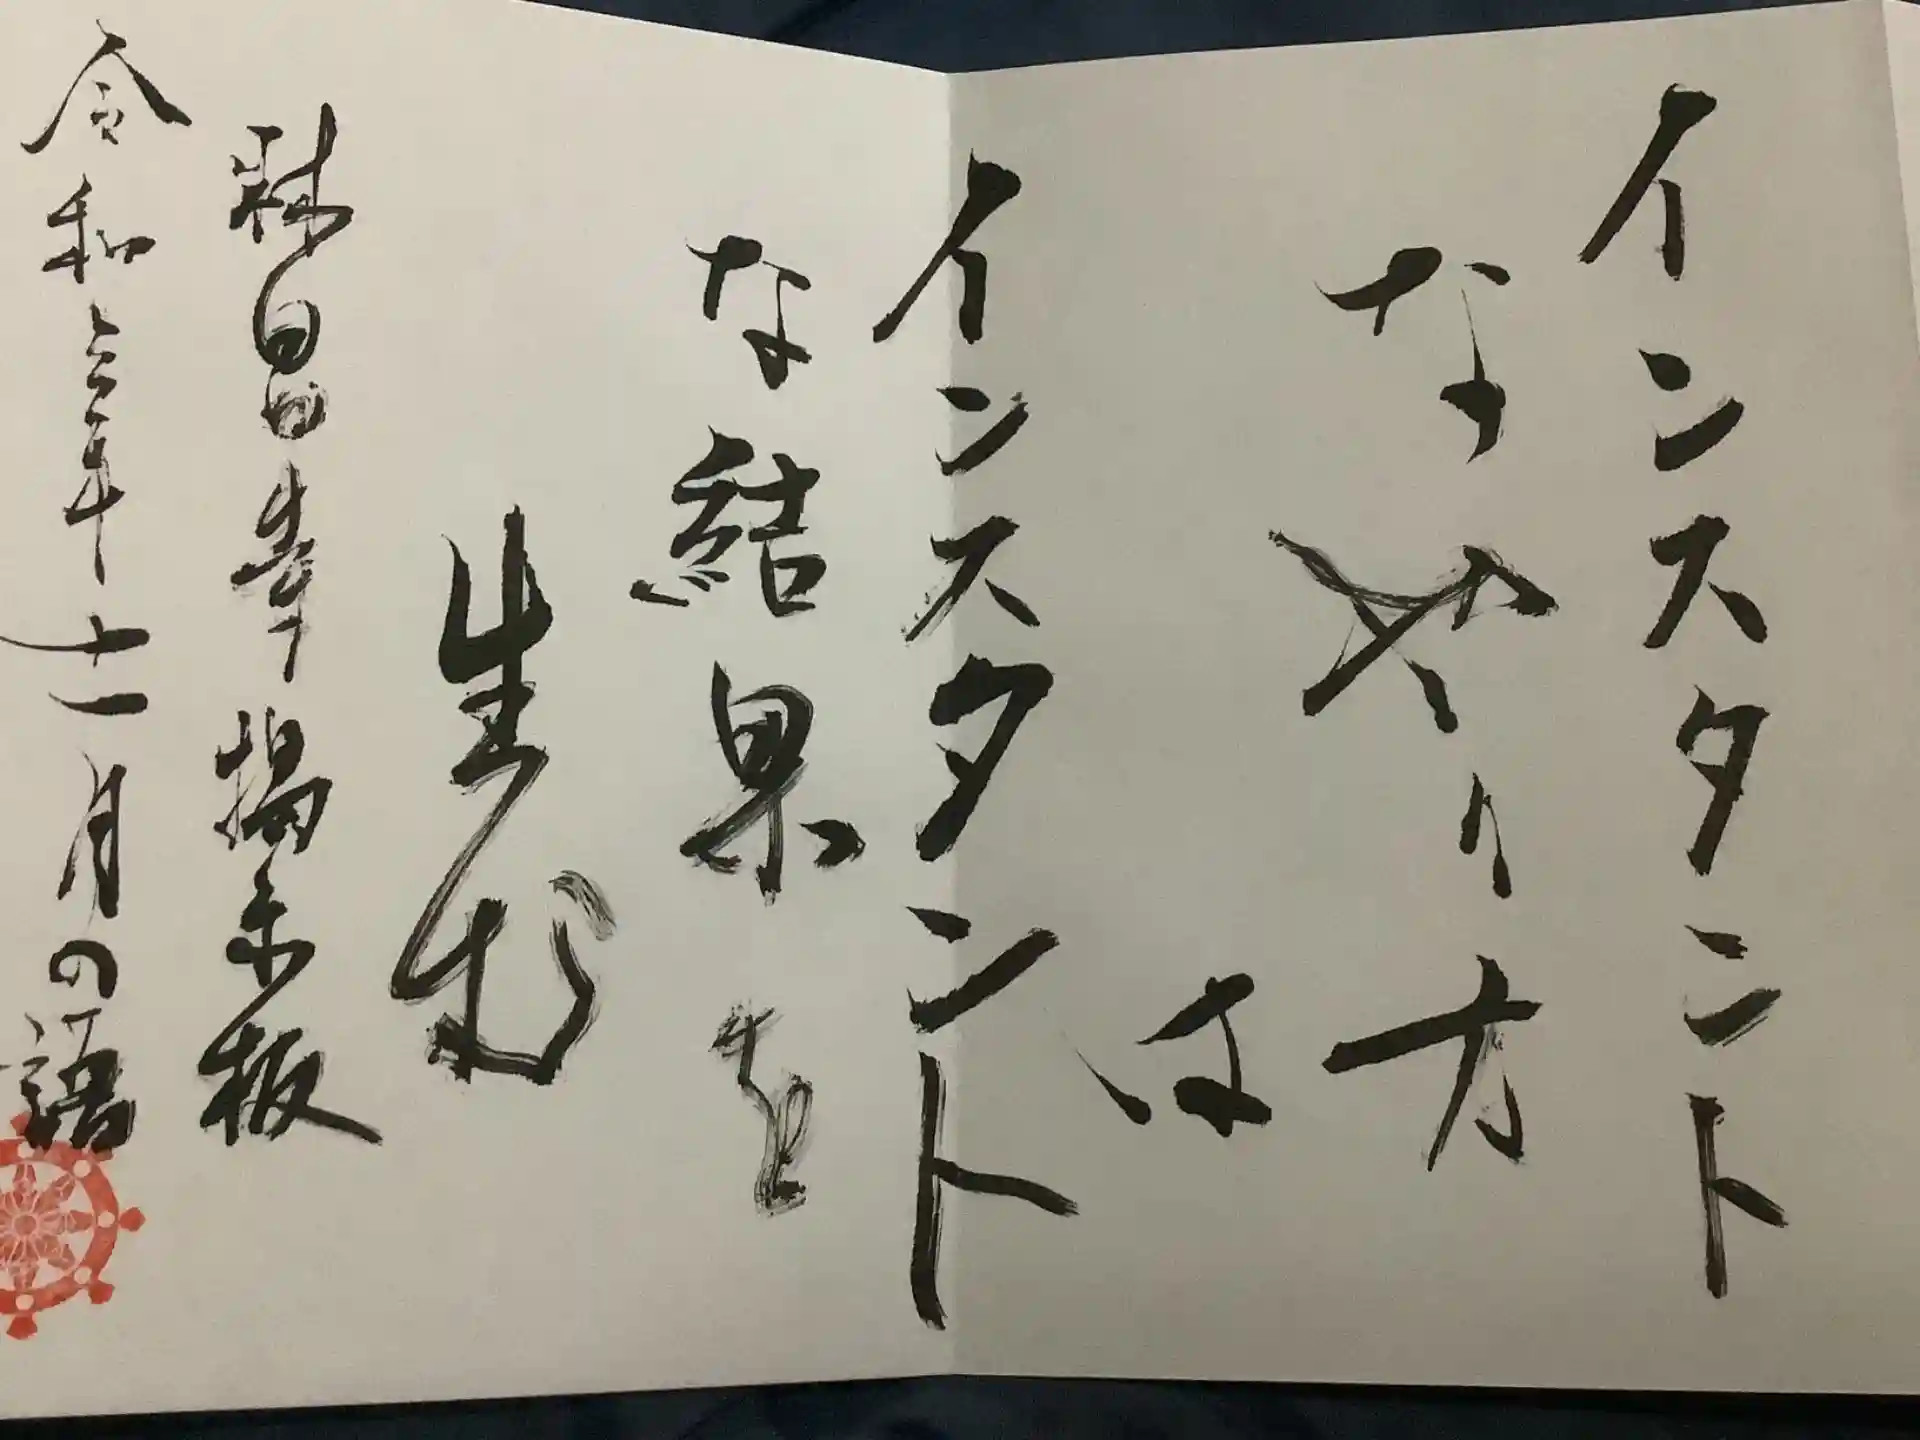 インスタント
なやり方
は
インスタント
な結果を
生む
昌寺掲示板
令和六年十一月の語